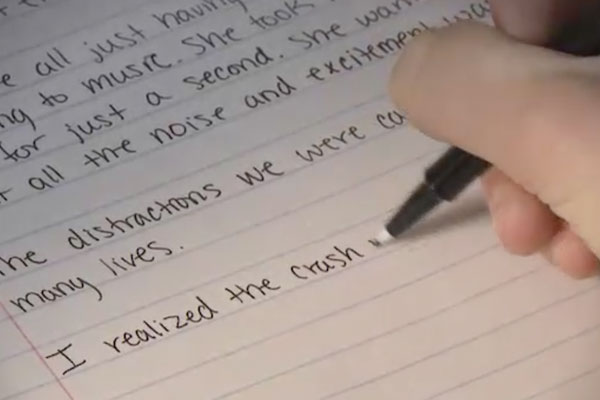 e all just having
ng to music. She took
for just a second. She wan
r all the noise and excitement was
he distractions we were ca
many lives.
I realized the crash w